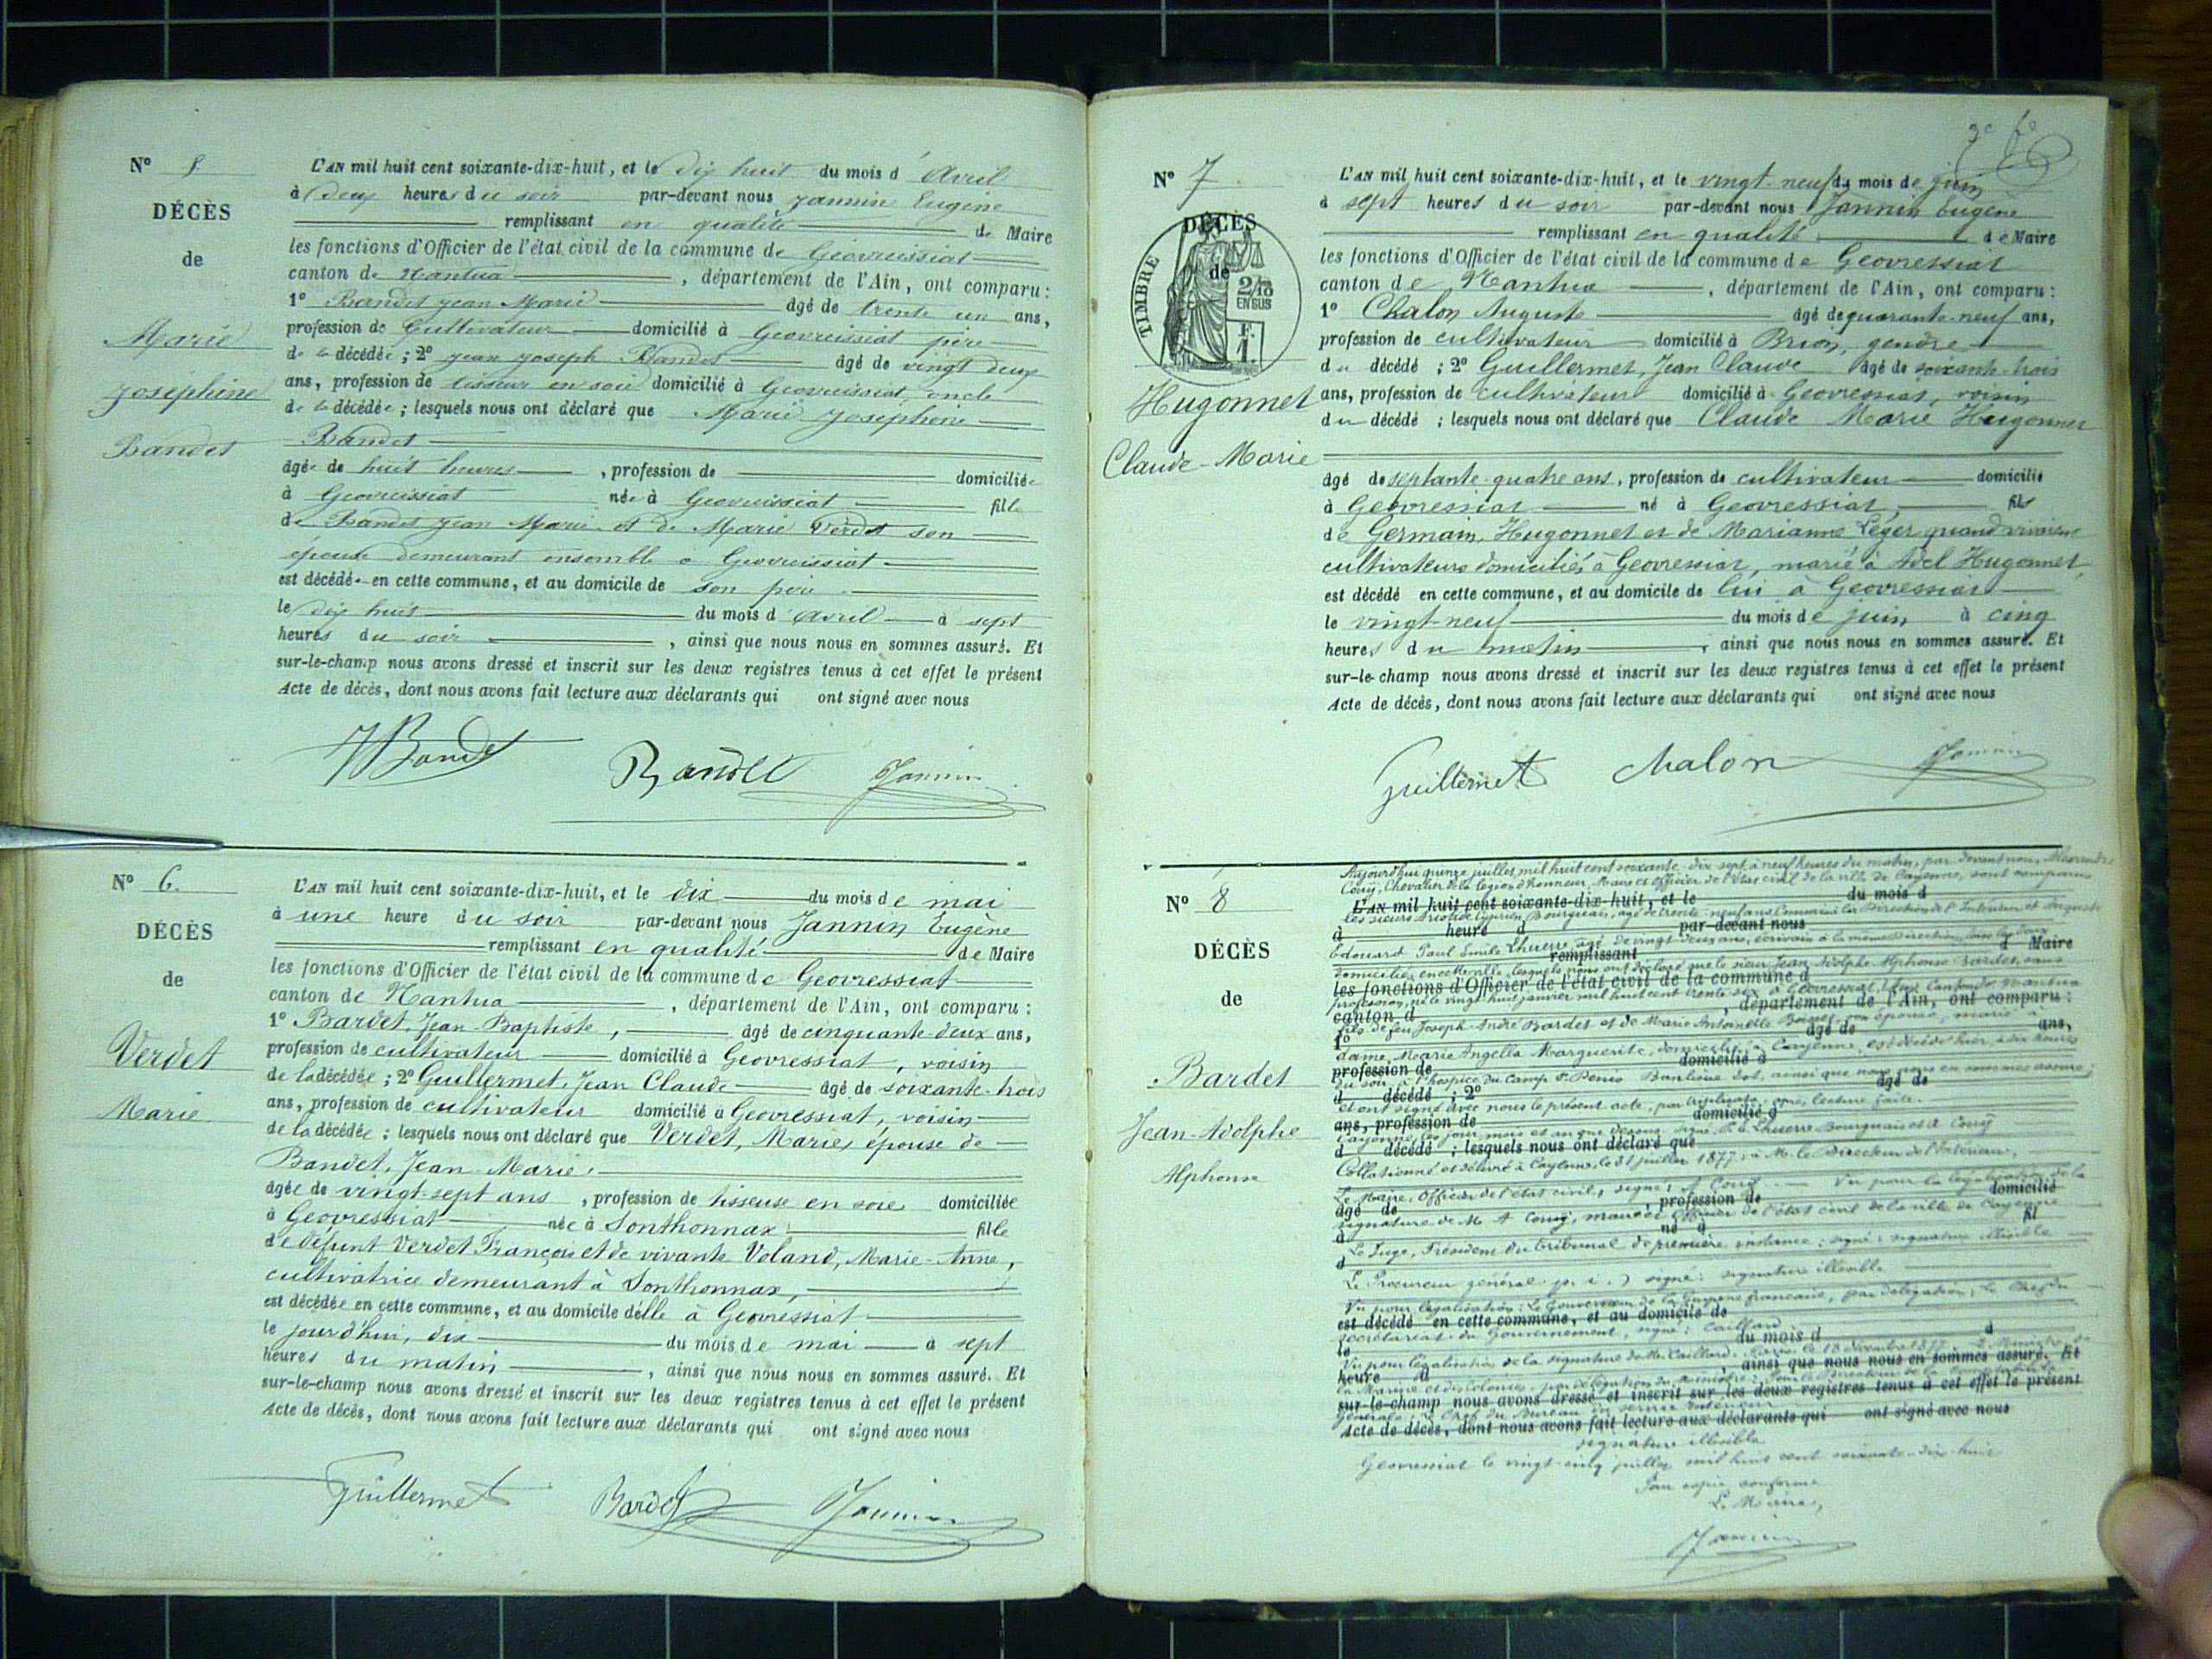 N° 5.
DÉCÈS
de
Marie
Joséphine
Bandet
L'AN mil huit cent soixante-dix-huit, et le dix huit du mois d'Avril
à deux heures du soir par-devant nous Jannin Eugène
remplissant en qualité de Maire
les fonctions d'Officier de l'état civil de la commune de Geovreissiat
canton de Nantua, département de l'Ain, ont comparu:
1° Bandet Jean Marie âgé de trente un ans,
profession de Cultivateur domicilié à Geovreissiat père
de la décédée; 2° Jean Joseph Bandet âgé de vingt deux
ans, profession de tisseur en soie domicilié à Geovreissiat, oncle
de la décédée; lesquels nous ont déclaré que Marie Joséphine
Bandet
âgée de huit heures, profession de domiciliée
à Geovreissiat née à Geovreissiat fille
de Bandet Jean Marie et de Marie Verdet son
épouse demeurant ensemble à Geovreissiat
est décédée en cette commune, et au domicile de son père
le dix huit du mois d'avril à sept
heures du soir, ainsi que nous nous en sommes assuré. Et
sur-le-champ nous avons dressé et inscrit sur les deux registres tenus à cet effet le présent
Acte de décès, dont nous avons fait lecture aux déclarants qui ont signé avec nous
Bandet Bandet Jannin
N° 6.
DÉCÈS
de
Verdet
Marie
L'AN mil huit cent soixante-dix-huit, et le dix du mois de mai
à une heure du soir par-devant nous Jannin Eugène
remplissant en qualité de Maire
les fonctions d'Officier de l'état civil de la commune de Geovressiat
canton de Nantua, département de l'Ain, ont comparu:
1° Bardet, Jean-Baptiste, âgé de cinquante-deux ans,
profession de cultivateur domicilié à Geovressiat, voisin
de la décédée; 2° Guillermet, Jean Claude âgé de soixante-trois
ans, profession de cultivateur domicilié à Geovressiat, voisin
de la décédée; lesquels nous ont déclaré que Verdet, Marie, épouse de
Bandet, Jean-Marie,
âgée de vingt-sept ans, profession de tisseuse en soie domiciliée
à Geovressiat née à Sonthonnax fille
de défunt Verdet François et de vivante Voland, Marie-Anne,
cultivatrice demeurant à Sonthonnax,
est décédée en cette commune, et au domicile d'elle à Geovressiat
le jourd'hui, dix du mois de mai à sept
heures du matin, ainsi que nous nous en sommes assuré. Et
sur-le-champ nous avons dressé et inscrit sur les deux registres tenus à cet effet le présent
Acte de décès, dont nous avons fait lecture aux déclarants qui ont signé avec nous
Guillermet Bardet Jannin
N° 7
DÉCÈS
de
TIMBRE
2/10
EN SUS
F.
1.
Hugonnet
Claude-Marie
L'AN mil huit cent soixante-dix-huit, et le vingt-neuf du mois de juin
à sept heures du soir par-devant nous Jannin Eugène
remplissant en qualité de Maire
les fonctions d'Officier de l'état civil de la commune de Geovressiat
canton de Nantua, département de l'Ain, ont comparu:
1° Chalon Auguste âgé de quarante-neuf ans,
profession de cultivateur domicilié à Brion, gendre
du décédé; 2° Guillermet, Jean Claude âgé de soixante-trois
ans, profession de cultivateur domicilié à Geovressiat, voisin
du décédé; lesquels nous ont déclaré que Claude Marie Hugonnet
âgé de septante-quatre ans, profession de cultivateur domicilié
à Geovressiat né à Geovressiat, fils
de Germain Hugonnet et de Marianne Léger quand vivaient
cultivateurs domiciliés à Geovressiat, marié à Adel Hugonnet,
est décédé en cette commune, et au domicile de lui à Geovressiat
le vingt-neuf du mois de juin à cinq
heures du matin, ainsi que nous nous en sommes assuré. Et
sur-le-champ nous avons dressé et inscrit sur les deux registres tenus à cet effet le présent
Acte de décès, dont nous avons fait lecture aux déclarants qui ont signé avec nous
Guillermet Chalon Jannin
N° 8
DÉCÈS
de
Bardet
Jean-Adolphe
Alphonse
Aujourd'hui quinze juillet mil huit cent soixante-dix-sept, à neuf heures du matin, par devant nous, Alexandre
Couÿ, Chevalier de la légion d'honneur, Maire et Officier de l'état civil de la ville de Cayenne, sont comparus
L'AN mil huit cent soixante-dix-huit, et le du mois d
les sieurs Aristide Cyprien Bourguais, âgé de trente-neuf ans, Commis à la Direction de l'Intérieur et Auguste
à heure d par-devant nous
Edouard Paul Emile Lhuerre, âgé de vingt-deux ans, écrivain à la même Direction, tous les deux
remplissant d Maire
domiciliés en cette ville, lesquels nous ont déclaré que le sieur Jean Adolphe Alphonse Bardet, sans
les fonctions d'Officier de l'état civil de la commune d
profession, né le vingt-huit janvier mil huit cent trente-six à Geovressiat, Canton de Nantua
canton d , département de l'Ain, ont comparu:
fils de feu Joseph-André Bardet et de Marie Antoinette son épouse, marié à
1° âgé de ans,
dame Marie Angella Marguerite, domicilié à Cayenne, est décédé hier, à dix heures
profession de domicilié à
du soir, à l'hospice du Camp St Denis Banlieue Est, ainsi que nous nous en sommes assuré;
d décédé; 2° âgé de
et ont signé avec nous le présent acte, par triplicata, après lecture faite.
ans, profession de domicilié à
Cayenne, les jour, mois et an que dessus. Signé: Lhuerre, Bourguais et A Couÿ
d décédé; lesquels nous ont déclaré que
Collationné et délivré à Cayenne, le 31 juillet 1877, à M. le Directeur de l'Intérieur.
Le Maire, Officier de l'état civil, signé: A Couÿ. Vu pour la légalisation de la
âgé de , profession de domicilié
signature de M. A Couÿ, maire et Officier de l'état civil de la ville de Cayenne
à né à fil
Le Juge, Président du tribunal de première instance: signé: signature illisible
d
Le Procureur général p. i.) signé: signature illisible
Vu pour légalisation: Le Gouverneur de la Guyane française, par délégation, Le Chef du
est décédé en cette commune, et au domicile de
secrétariat du Gouvernement, signé: Caillard
le du mois d à
Vu pour légalisation de la signature de M. Caillard. Paris, le 18 décembre 1877. Le Ministre de
heure d , ainsi que nous nous en sommes assuré. Et
la Marine et des Colonies, par délégation du ministre: Pour le Directeur de la
sur-le-champ nous avons dressé et inscrit sur les deux registres tenus à cet effet le présent
générale: Le Chef du Bureau du service intérieur
Acte de décès, dont nous avons fait lecture aux déclarants qui ont signé avec nous
signature illisible
Geovressiat le vingt-cinq juillet mil huit cent soixante-dix-huit
Pour copie conforme
Le Maire,
Jannin